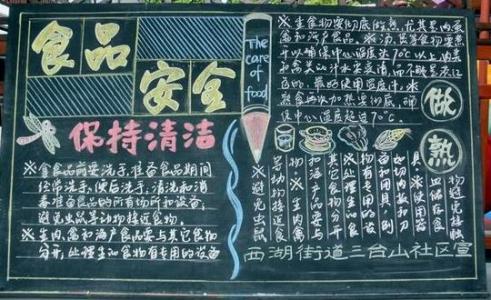 食品
安全
The
care
of
food
保持清洁
※拿食品前要洗手,准备食品期间
经常洗手,便后洗手,清洗和消
毒准备食品的所有场所和设备,
避免虫鼠等动物接近食物。
※生肉,禽和海产食品要与其它食物
分开,处理生的食物有专用的设备
做
熟
※生食物要彻底做熟,尤其是肉蛋
禽和海产食品。※汤,煲等食物要煮
开以确保中心温度达70℃以上,肉类
和禽类的汁水要变清,而不能是淡红
色的,最好使用温度计,※
熟食再次加热要彻底,确
保中心温度超过70℃。
物避免接触
血储存食
※使用器
如切肉板和刀
具和用具,例
物有专用的设
※处理生的食
其它食物分开
和海产品要与
物。※生肉禽
等动物接近食
※避免虫鼠
西湖街道三台山社区宣